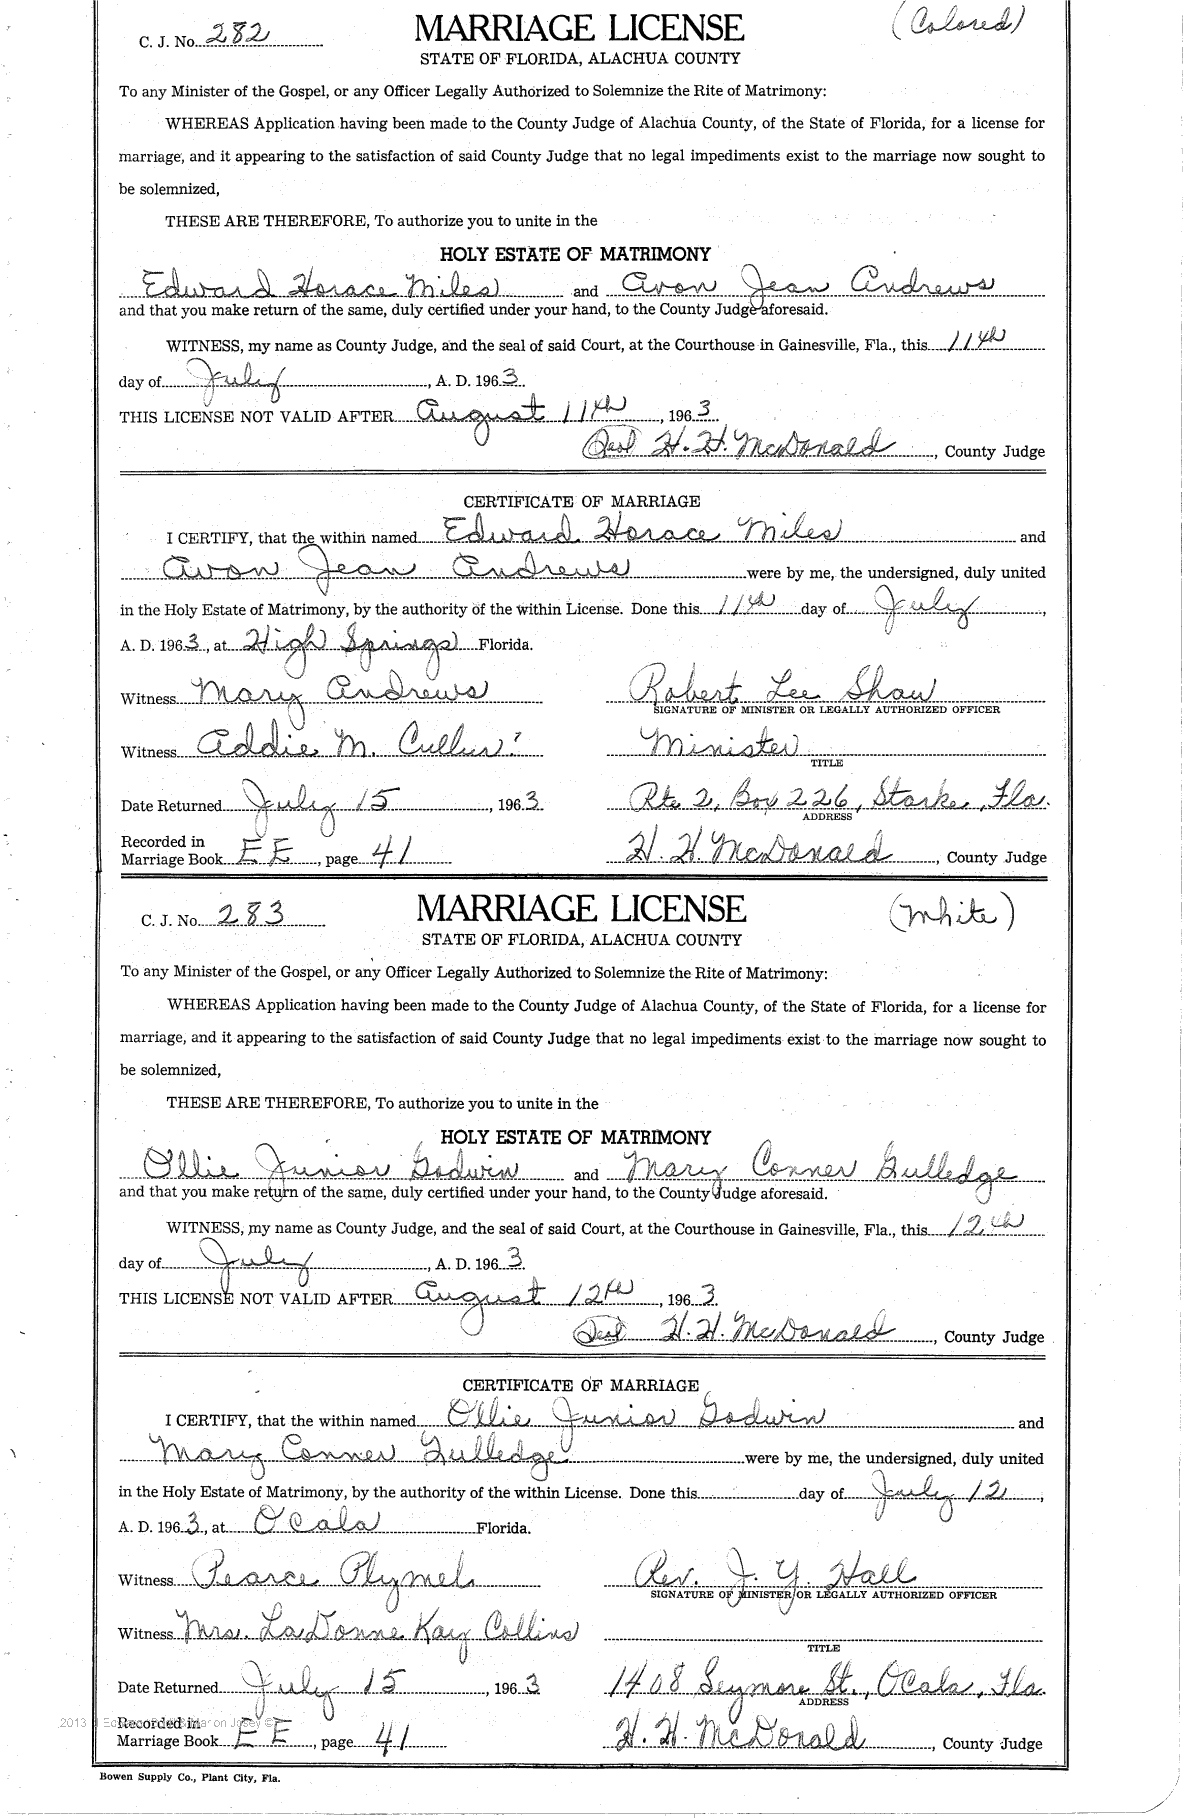 C. J. No. 282 MARRIAGE LICENSE (Colored)
STATE OF FLORIDA, ALACHUA COUNTY
To any Minister of the Gospel, or any Officer Legally Authorized to Solemnize the Rite of Matrimony:
WHEREAS Application having been made to the County Judge of Alachua County, of the State of Florida, for a license for
marriage, and it appearing to the satisfaction of said County Judge that no legal impediments exist to the marriage now sought to
be solemnized,
THESE ARE THEREFORE, To authorize you to unite in the
HOLY ESTATE OF MATRIMONY
Edward Horace Miles and Avon Jean Andrews
and that you make return of the same, duly certified under your hand, to the County Judge aforesaid.
WITNESS, my name as County Judge, and the seal of said Court, at the Courthouse in Gainesville, Fla., this 11th
day of July, A. D. 1963.
THIS LICENSE NOT VALID AFTER August 11th, 1963
(Seal) H. H. McDonald, County Judge
CERTIFICATE OF MARRIAGE
I CERTIFY, that the within named Edward Horace Miles and
Avon Jean Andrews were by me, the undersigned, duly united
in the Holy Estate of Matrimony, by the authority of the within License. Done this 11th day of July,
A. D. 1963, at High Springs Florida.
Witness Mary Andrews Robert Lee Shaw
SIGNATURE OF MINISTER OR LEGALLY AUTHORIZED OFFICER
Witness Addie M. Minister
TITLE
Date Returned July 15, 1963 Rte 2, Box 226, Starke, Fla.
ADDRESS
Recorded in
Marriage Book EE, page 41 H. H. McDonald, County Judge
C. J. No. 283 MARRIAGE LICENSE (White)
STATE OF FLORIDA, ALACHUA COUNTY
To any Minister of the Gospel, or any Officer Legally Authorized to Solemnize the Rite of Matrimony:
WHEREAS Application having been made to the County Judge of Alachua County, of the State of Florida, for a license for
marriage, and it appearing to the satisfaction of said County Judge that no legal impediments exist to the marriage now sought to
be solemnized,
THESE ARE THEREFORE, To authorize you to unite in the
HOLY ESTATE OF MATRIMONY
Ollie Junior Godwin and Mary Conner Gulledge
and that you make return of the same, duly certified under your hand, to the County Judge aforesaid.
WITNESS, my name as County Judge, and the seal of said Court, at the Courthouse in Gainesville, Fla., this 12th
day of July, A. D. 1963.
THIS LICENSE NOT VALID AFTER August 12th, 1963
(Seal) H. H. McDonald, County Judge
CERTIFICATE OF MARRIAGE
I CERTIFY, that the within named Ollie Junior Godwin and
Mary Conner Gulledge were by me, the undersigned, duly united
in the Holy Estate of Matrimony, by the authority of the within License. Done this day of July 12,
A. D. 1963, at Ocala Florida.
Witness Pearce Plymel Rev. J. Y. Hall
SIGNATURE OF MINISTER OR LEGALLY AUTHORIZED OFFICER
Witness Mrs. LaDonne Kay Collins
TITLE
Date Returned July 15, 1963 1408 Seymore St., Ocala, Fla.
ADDRESS
Recorded in
Marriage Book EE, page 41 H. H. McDonald, County Judge
Bowen Supply Co., Plant City, Fla.